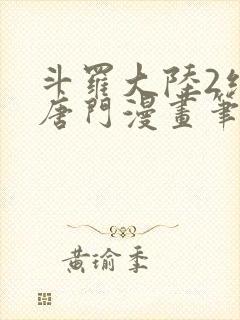 斗羅大陸2絕
唐門漫畫筆
黃瑜季